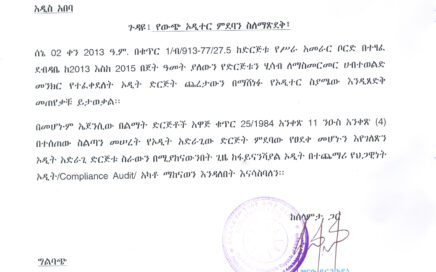 አዲስ አበባ
ጉዳዩ፤ የውጭ ኦዲተር ምደባን ስለማጽደቅ፤
ሰኔ 02 ቀን 2013 ዓ.ም. በቁጥር 1/ብ/913-77/27.5 ከድርጅቱ የሥራ አመራር ቦርድ በተፃፈ
ደብዳቤ ከ2013 እስከ 2015 በጀት ዓመት ያለውን የድርጅቱን ሂሳብ ለማስመርመር ሀብተወልድ
መንክር የተፈቀደለት ኦዲት ድርጅት ጨረታውን በማሸነፉ የኦዲተር ስያሜው እንዲጸድቅ
መጠየቃቹ ይታወቃል፡፡
በመሆኑም ኤጀንሲው በልማት ድርጅቶች አዋጅ ቁጥር 25/1984 አንቀጽ 11 ንዑስ አንቀጽ (4)
በተሰጠው ስልጣን መሠረት የኦዲት አድራጊው ድርጅት ምደባው የፀደቀ መሆኑን እየገለጽን
ኦዲት አድራጊ ድርጅቱ ስራውን በሚያከናውንበት ጊዜ ከፋይናንሺያል ኦዲት በተጨማሪ የህጋዊነት
ኦዲት/Compliance Audit/ አካቶ ማከናወን እንዳለበት እናሳስባለን፡፡
ከሰላምታ ጋር
ግልባጭ